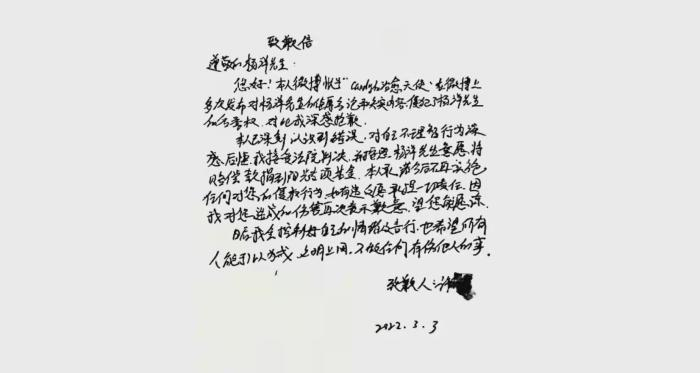 致歉信
尊敬的杨洋先生：
您好！本人微博昵"Candy治愈天使，在微博上
多次发布对杨洋先生的侮辱言论和失实内容，侵犯了杨洋先生
的名誉权，对此我深感抱歉。
本人已深刻认识到错误，对自己不理智行为深
感后悔，我接受法院判决，并按照杨洋先生意愿，将
赔偿款捐到阳光专项基金。本人承诺今后不再实施
任何对您的侵权行为，如有违反愿承担一切责任。因
我对您造成的伤害再次表示歉意，望您能原谅。
日后我会控制好自己的情绪及言行，也希望所有
人能引以为戒，文明上网，不做任何有伤他人的事。
致歉人：许
2022.3.3